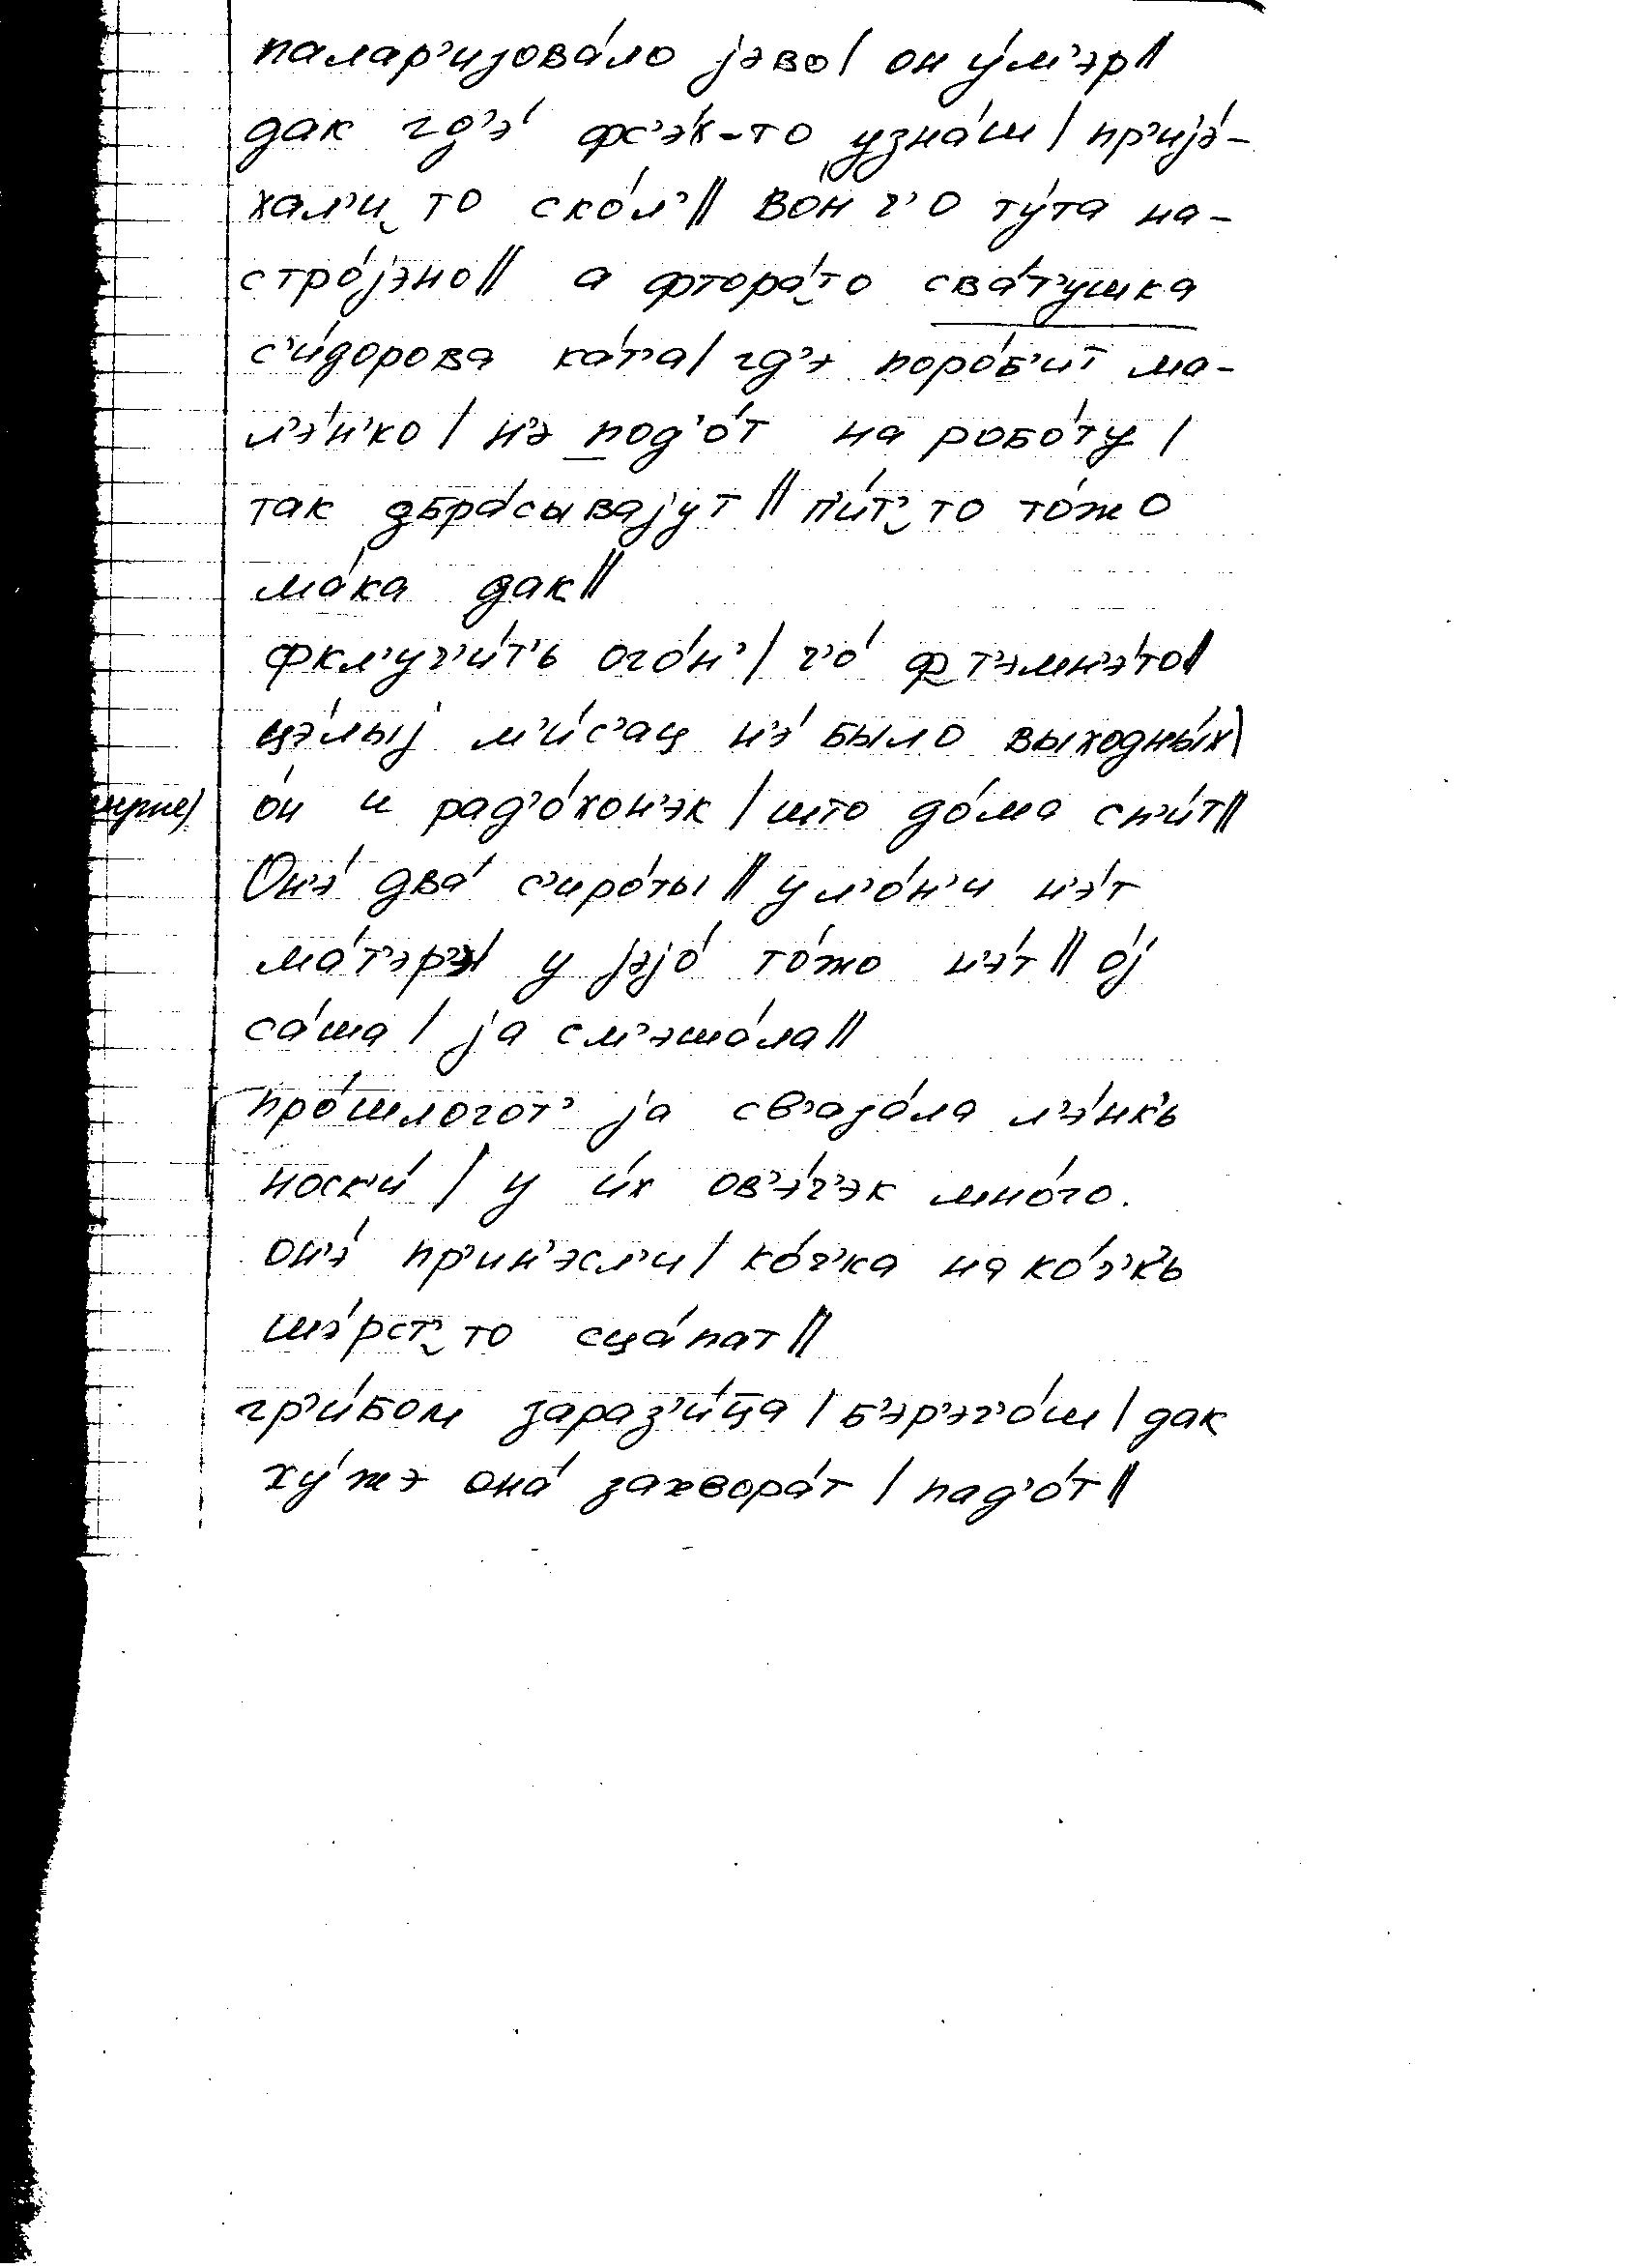 палар’изова́ло јэво | он у́м’эр ||
дак гд’э́ фс’э́х-то узна́ш | пр’ијэ́-
хал’и‿то ско́л’ || во́н ч’о ту́та на-
стро́јэно || а фтора́‿то сва́т’ушка
с’и́дорова ка́т’а | гд’э поро́б’ит ма-
л’э́н’ко | н’э под’о́т на робо́ту |
так дбра́сывајут || п’и́т’‿то то́жо
ма́ка дак ||
фкл’уч’и́т’ь ого́н’ | ч’о́ ф‿т’эмн’э́то ||
цэ́лыј м’и́с’ац н’э́ было выходны́х |
о́н и рад’о́хон’эк | што до́ма сп’и́т ||
Он’э́ два́ с’иро́ты || у л’о́н’и н’э́т
ма́т’эр’э | у јэјо́ то́жо н’э́т || о́ј
са́ша | ја см’эша́ла ||
про́шлогот’ ја св’аза́ла л’э́нк’ь
носк’и́ | у и́х ов’э́ч’эк мно́го.
он’э́ пр’ин’эсл’и | ко́ч’ка на ко́ч’к’ь
шэ́рст’‿то сца́пат ||
гр’и́бом зараз’и́ца | б’эр’эг’о́ш | дак
ху́жэ она́ захвора́т | пад’о́т ||